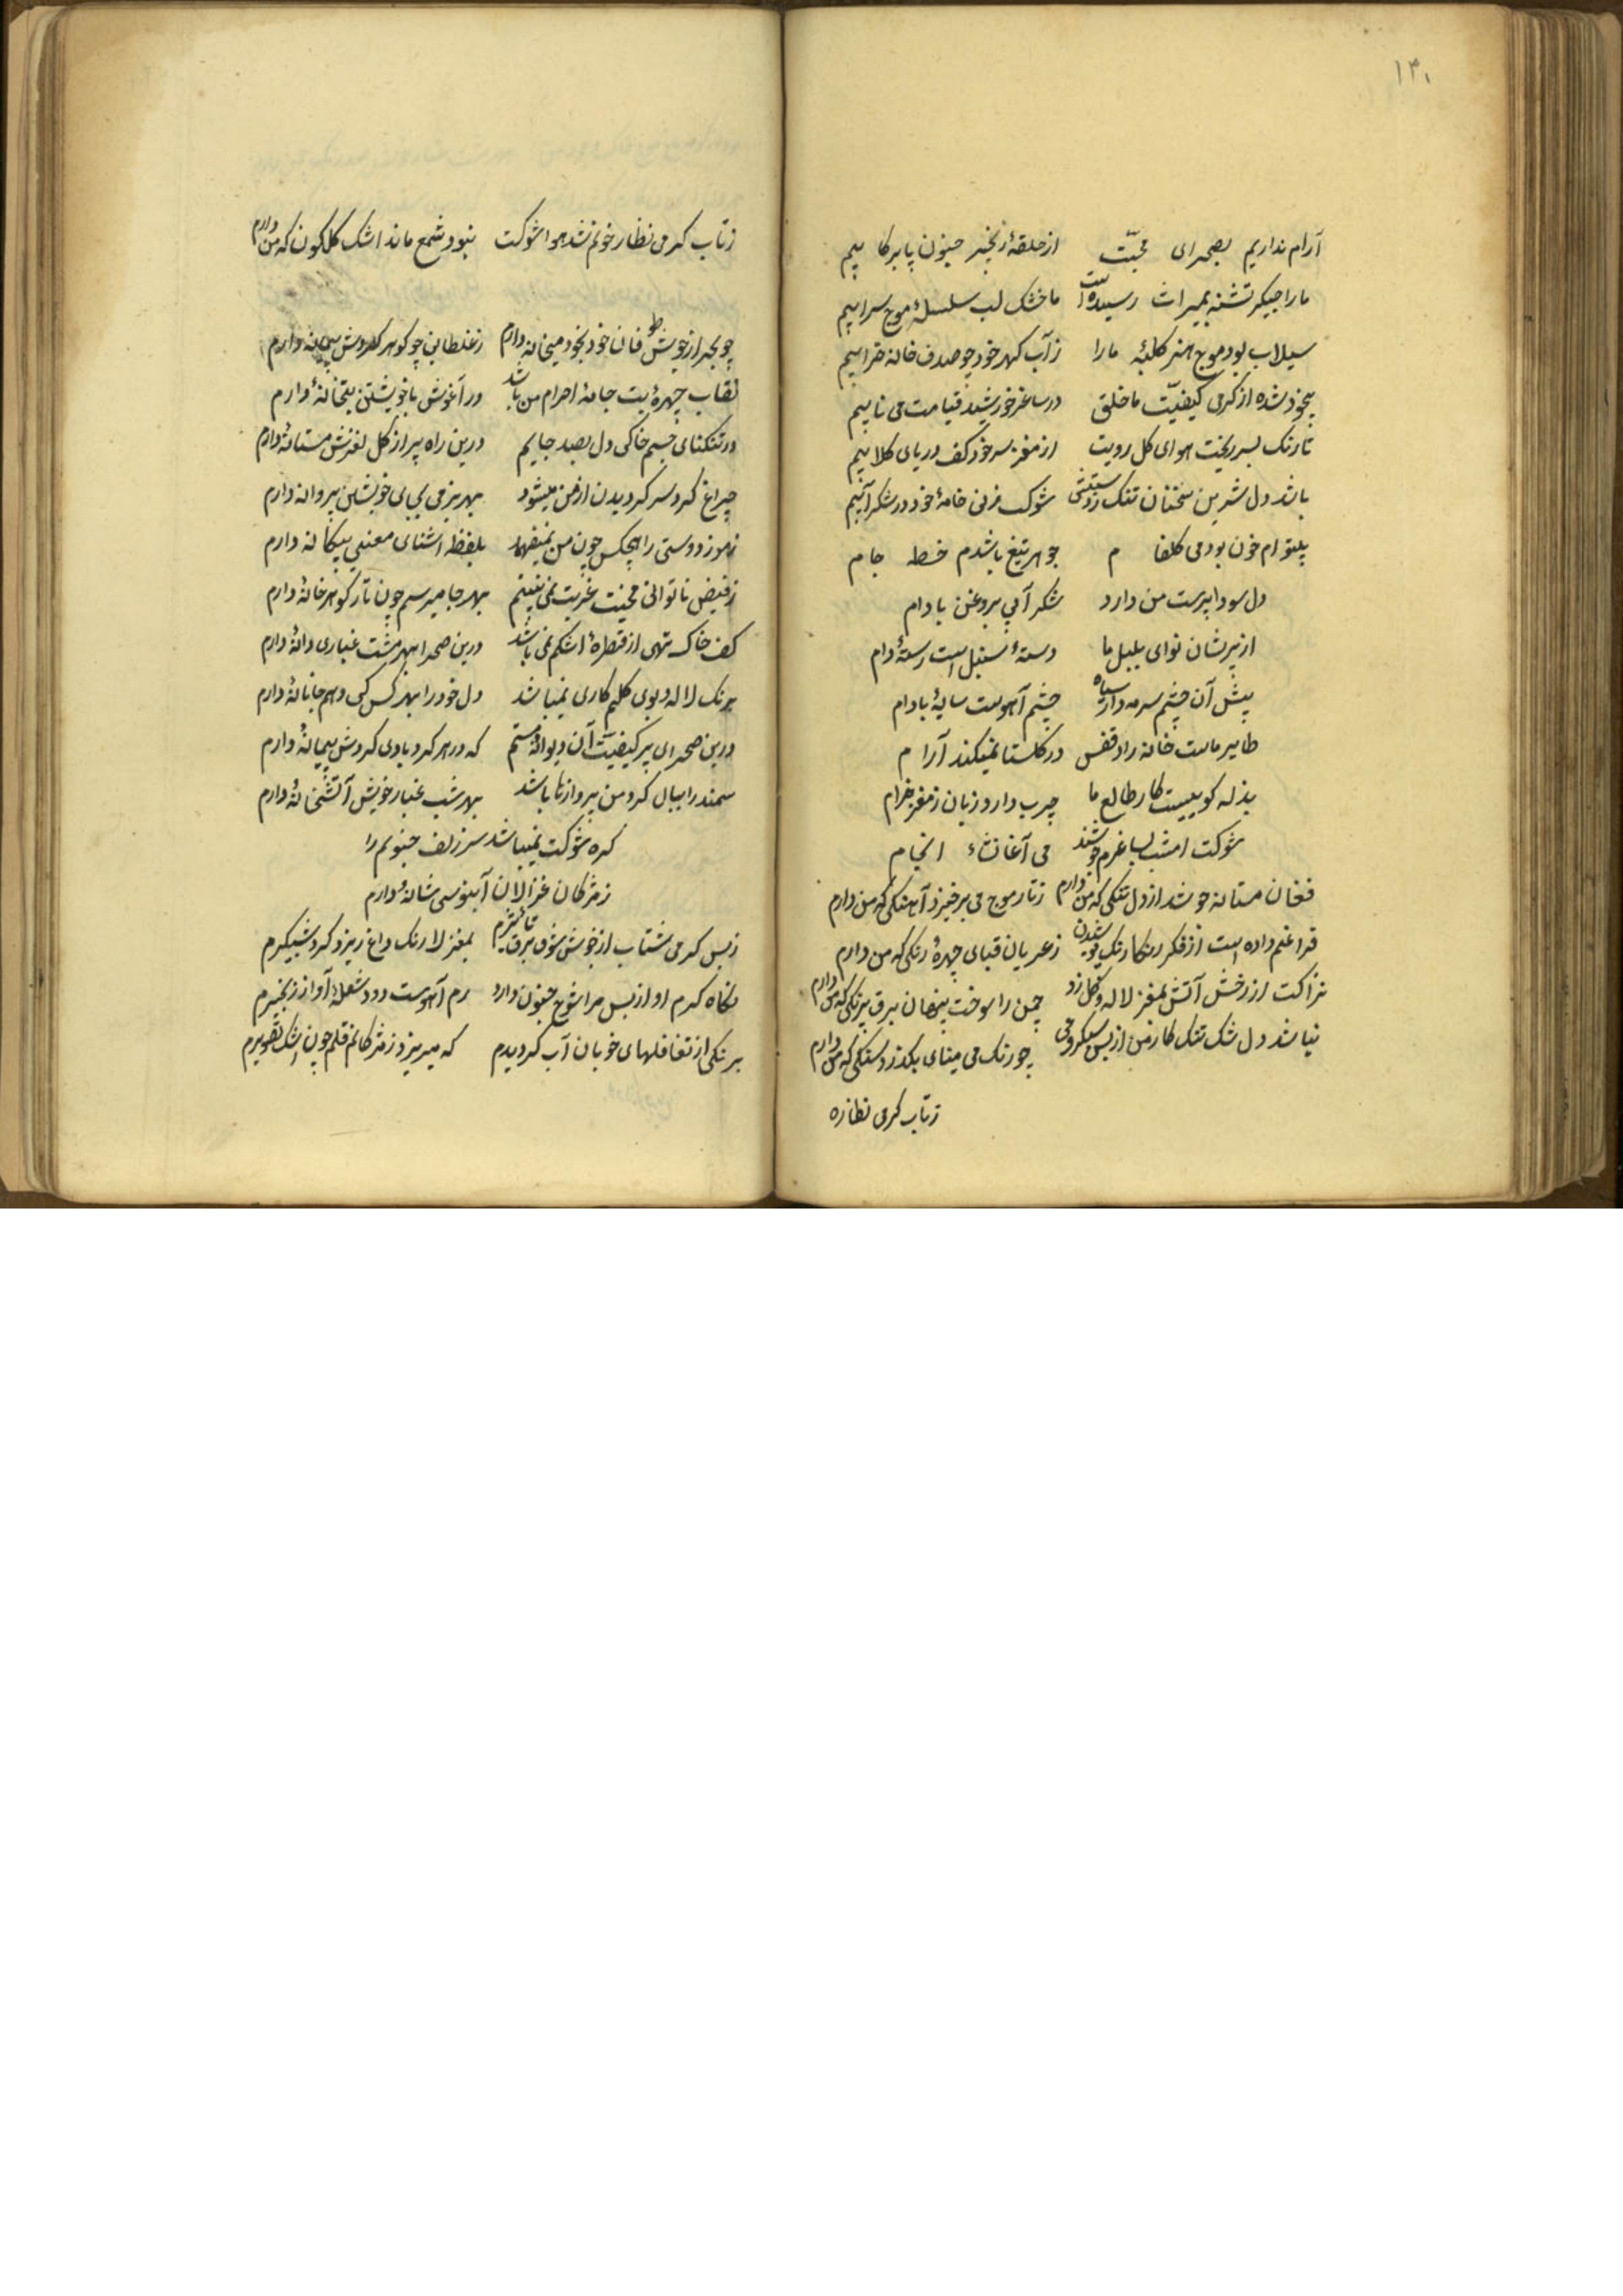 ۱۳۰
آرام نداریم بصحرای محبّت از حلقهٔ زنجیر جنون پا برکابیم
ما را جگر تشنه بمیراث رسیده است ما خشک لب سلسلهٔ موج سرابیم
سیلاب بود موج هنر کلبهٔ ما را ز آب گهر خود چو صدف خانه خرابیم
بیخود شده از گرمی کیفیّت ما خلق در ساغر خورشید قیامت می نابیم
تا رنک بسر ریخت هوای کل رویت از مغز سر خود کف دریای کلابیم
باشد دل شیرین سخنان تنک شوکت ز نی خامهٔ خود در شکرابیم
بیتو ام خون بود می کلفام جوهر تیغ باشدم خط جام
دل سودا پرست من دارد شکر آبی بروغن بادام
از پریشان نوای بلبل ما دستهٔ سنبل است رستهٔ دام
پیش آن چشم سرمه دار سیاه چشم آهوست سایهٔ بادام
طایر ماست خانه زاد قفس در کلستا نمیکند آرام
بذله کوییست کار طالع ما چرب دارد زبان ز مغز خرام
شوکت امشب بساغرم می آغاز نشاء انجام
فغان مستانه جوشد از دل تنکی که من دارم ز تار موج می برخیزد آهنکی که من دارم
فراغم داده است از فکر رنکارنک پوشیدن ز عریان قبای چهرهٔ رنکی که من دارم
نزاکت از رخش آتش بمغز لاله و کل زد چمن را سوخت پنهان برق نیرنکی که من دارم
نباشد دل شک تنک کار من از بس سبکروحی چو رنک می مینای بکذرد سنکی که من دارم
ز تاب کرمی نظاره
ز تاب کرمی نظار خونم شد هوا شوکت نبود شمع ماند اشک کلکون که من دارم
چو بحر از خویش فان خود بخود میخانه دارم ز غلطانی چو کوهر کردش پیمانه دارم
نقاب چهرهٔ بت جامهٔ احرام من باشد در آغوش با خویشتن بتخانهٔ دارم
در تنکنای جسم خاکی دل بصد جایم درین راه پر از کل لغزش مستانهٔ دارم
چراغ کرد سر کردیدن از من میشود بهر بزمی پی پی خویشتن پروانه دارم
رموز دوستی را هیچکس چون من نمیفهمد بلفظ اشنای معنی بیکانه دارم
ز فیض ناتوانی محنت غربت نمی بینم بهر جا میرسم چون تار کوهر خانهٔ دارم
کف خاک تهی از قطرهٔ اشکم نمی باشد درین صحرا بهر مشت غباری دانهٔ دارم
برنک لاله و بوی کلم کاری نمیباشد دل خود را بهر کس کی دهم جانانهٔ دارم
درین صحرای پر کیفیّت آن دیوانهٔ مستم که در هر کرد بادی کردش پیمانهٔ دارم
سمندر را ببال کرد من پروازها باشد بهر شب غبار خویش آتشخانهٔ دارم
کره شوکت نمیباشد سر زلف جنونم را
ز مژکان غزالان آبنوسی شانهٔ دارم
ز بس کرمی شتاب از جوش شوق برق تاثیرم بمغز لا رنک داغ ریزد کرد شبکیرم
نکاه کرم او از بس مرا شوخ جنون دارد رم آهوست دود شعلهٔ آواز زنجیرم
برنکی از تغافلهای خوبان آب کردیدم که میریزد ز مژکانم قلم چون اشک تصویرم